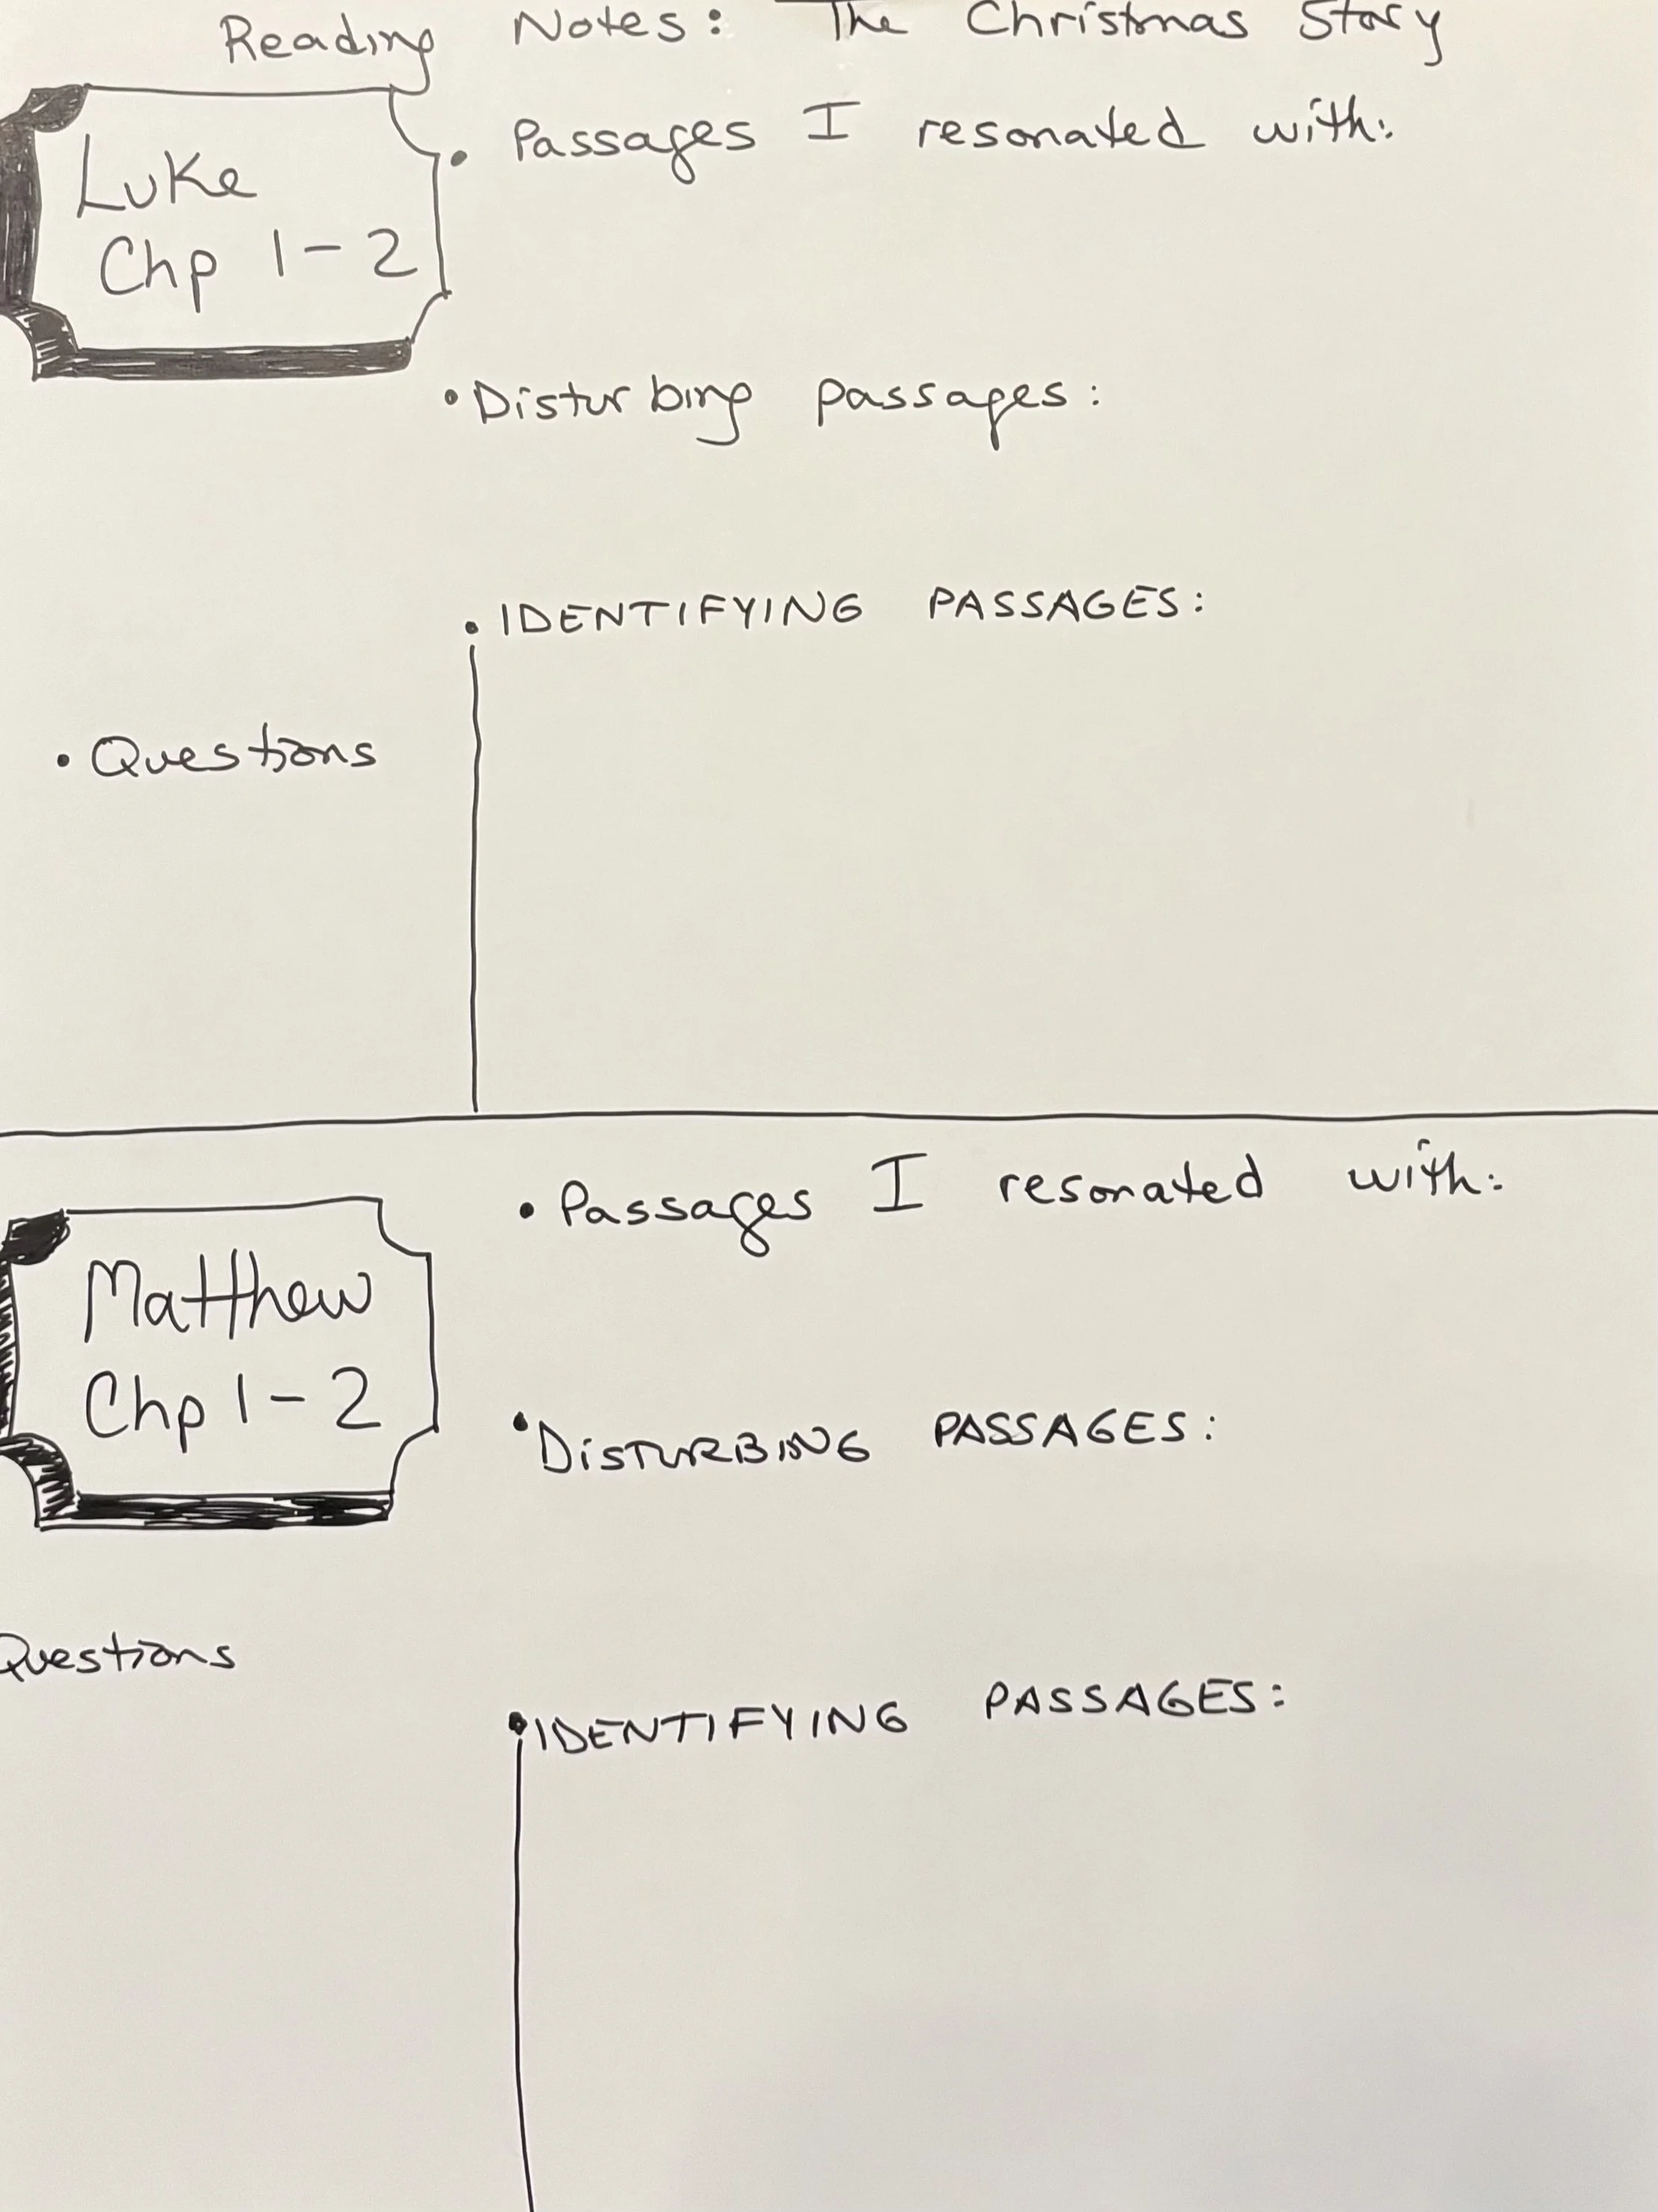 Reading Notes: The Christmas Story
Luke
Chp 1-2
• Passages I resonated with:
• Disturbing passages:
• IDENTIFYING PASSAGES:
• Questions
Matthew
Chp 1-2
• Passages I resonated with:
• DiSTURBING PASSAGES:
Questions
• IDENTIFYING PASSAGES: